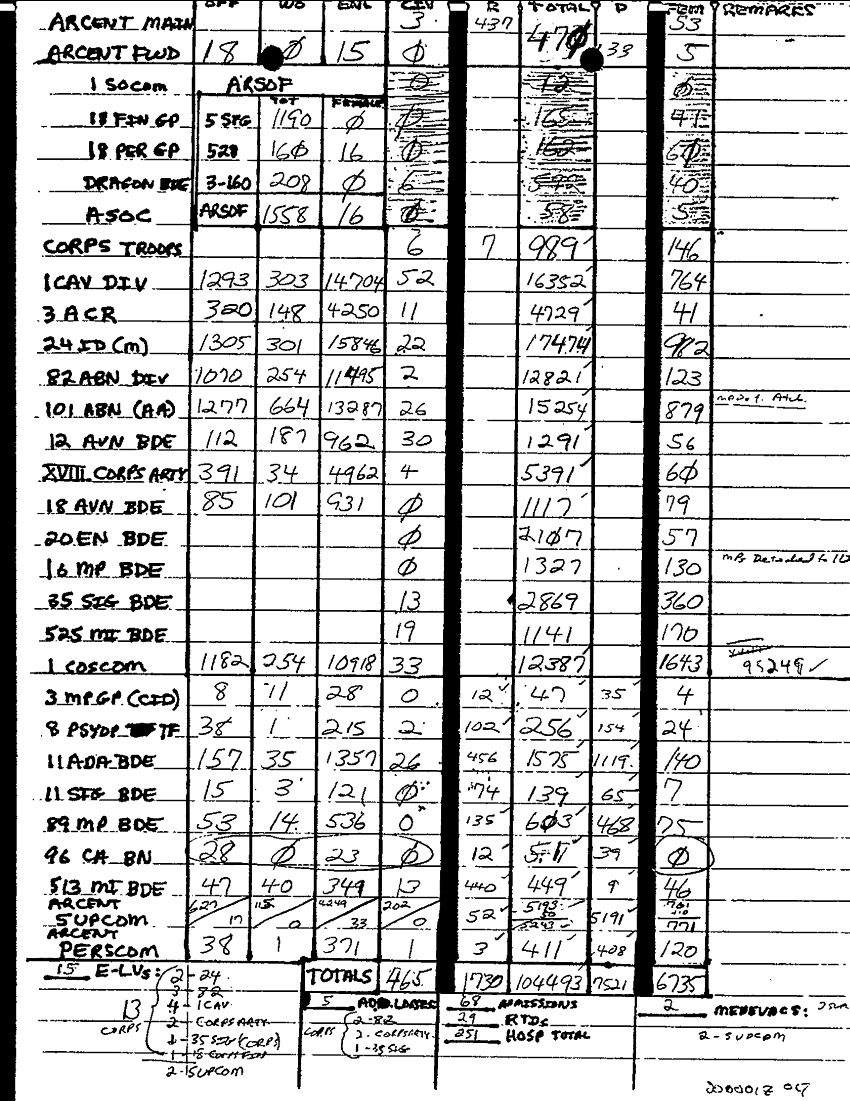 OFF WO ENL CIV R TOTAL P FEM REMARKS
ARCENT MAIN 3 437 470 53
ARCENT FWD 18 Ø 15 Ø 33 5
1 SOCOM ARSOF 0 12 Ø
TOT FEMALE
18 FIN GP 5 SFG 1190 Ø Ø 165 47
18 PER GP 528 160 16 Ø 162 60
DRAGON BDE 3-160 208 Ø 6 592 40
ASOC ARSOF 1558 16 Ø 58 5
CORPS TROOPS 6 7 989 146
1 CAV DIV 1293 303 14704 52 16352 764
3 ACR 320 148 4250 11 4729 41
24 ID (M) 1305 301 15846 22 17474 982
82 ABN DIV 1070 254 11495 2 12821 123
101 ABN (AA) 1277 664 13287 26 15254 879
12 AVN BDE 112 187 962 30 1291 56
XVIII CORPS ARTY 391 34 4962 4 5391 60
18 AVN BDE 85 101 931 Ø 1117 79
20 EN BDE Ø 2107 57
16 MP BDE Ø 1327 130 MPs Detached to
35 SIG BDE 13 2869 360
525 MI BDE 19 1141 170
1 COSCOM 1182 254 10918 33 12387 1643 95249 ✓
3 MP GP (CID) 8 11 28 0 12 47 35 4
8 PSYOP TF 38 1 215 2 102 256 154 24
11 ADA BDE 157 35 1357 26 456 1575 1119 140
11 SIG BDE 15 3 121 Ø 74 139 65 7
89 MP BDE 53 14 536 0 135 603 468 75
96 CA BN 28 Ø 23 Ø 12 51 39 Ø
513 MI BDE 47 40 349 13 440 449 9 46
ARCENT 627 115 4249 202 5193 761
SUPCOM 17 0 33 0 52 50 5191 10
5243 771
ARCENT
PERSCOM 38 1 371 1 3 411 408 120
TOTALS 465 1730 104493 7521 6735
15 E-LVs: 2-24
3-82
13 CORPS 4-1CAV
2-CORPS ARTY
1-35 SIG (CORPS)
2-SUPCOM
5 ADD. LOSSES
CORPS 2-82
2-CORPS ARTY
1-35 SIG
68 ADMISSIONS
29 RTDs
251 HOSP TOTAL
2 MEDEVACS:
2-SUPCOM